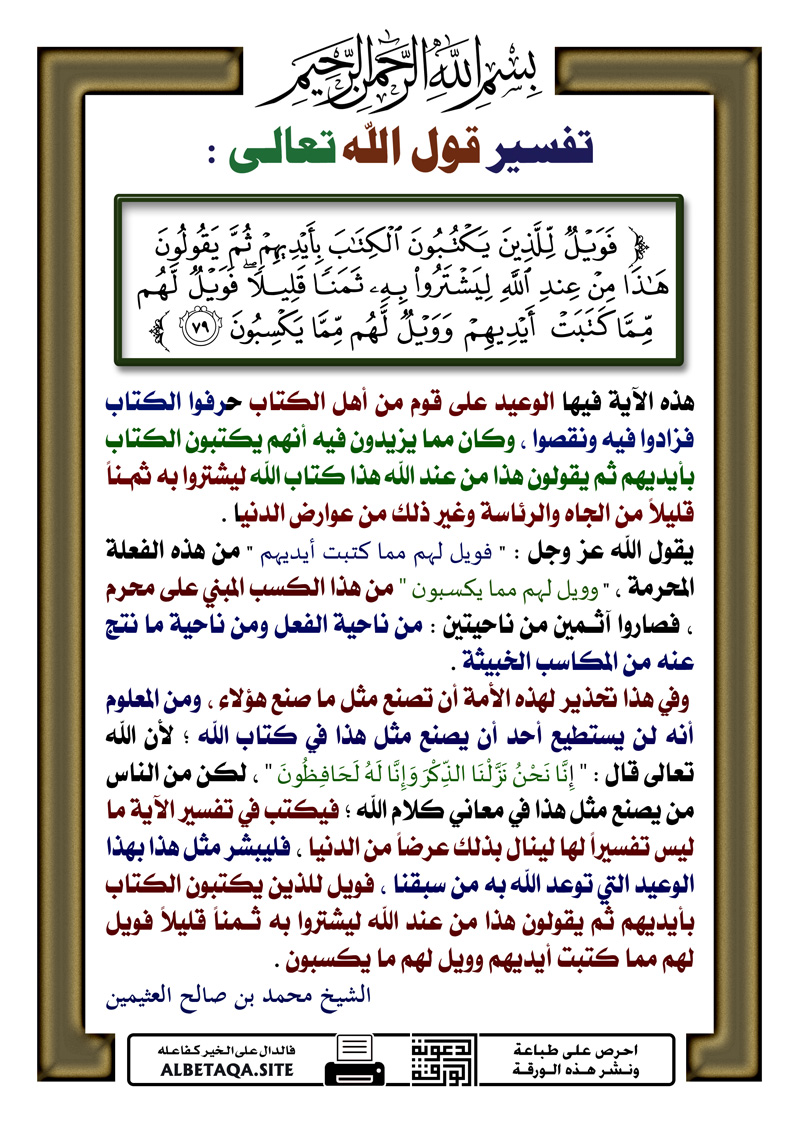 بسم الله الرحمن الرحيم
تفسير قول الله تعالى :
﴿ فَوَيْلٌ لِّلَّذِينَ يَكْتُبُونَ ٱلْكِتَٰبَ بِأَيْدِيهِمْ ثُمَّ يَقُولُونَ
هَٰذَا مِنْ عِندِ ٱللَّهِ لِيَشْتَرُوا۟ بِهِۦ ثَمَنًا قَلِيلًا ۖ فَوَيْلٌ لَّهُم
مِّمَّا كَتَبَتْ أَيْدِيهِمْ وَوَيْلٌ لَّهُم مِّمَّا يَكْسِبُونَ ٧٩ ﴾
هذه الآية فيها الوعيد على قوم من أهل الكتاب حرفوا الكتاب
فزادوا فيه ونقصوا ، وكان مما يزيدون فيه أنهم يكتبون الكتاب
بأيديهم ثم يقولون هذا من عند الله هذا كتاب الله ليشتروا به ثمـناً
قليلاً من الجاه والرئاسة وغير ذلك من عوارض الدنيا .
يقول الله عز وجل : " فويل لهم مما كتبت أيديهم " من هذه الفعلة
المحرمة ، " وويل لهم مما يكسبون " من هذا الكسب المبني على محرم
، فصاروا آثـمين من ناحيتين : من ناحية الفعل ومن ناحية ما نتج
عنه من المكاسب الخبيثة .
وفي هذا تحذير لهذه الأمة أن تصنع مثل ما صنع هؤلاء ، ومن المعلوم
أنه لن يستطيع أحد أن يصنع مثل هذا في كتاب الله ؛ لأن الله
تعالى قال : " إِنَّا نَحْنُ نَزَّلْنَا الذِّكْرَ وَإِنَّا لَهُ لَحَافِظُونَ " ، لكن من الناس
من يصنع مثل هذا في معاني كلام الله ؛ فيكتب في تفسير الآية ما
ليس تفسيراً لها لينال بذلك عرضاً من الدنيا ، فليبشر مثل هذا بهذا
الوعيد التي توعد الله به من سبقنا ، فويل للذين يكتبون الكتاب
بأيديهم ثم يقولون هذا من عند الله ليشتروا به ثـمناً قليلاً فويل
لهم مما كتبت أيديهم وويل لهم ما يكسبون .
الشيخ محمد بن صالح العثيمين
احرص على طباعة
ونـشر هـذه الـورقـة
الدعوية
الورقة
فالدال على الخير كفاعله
ALBETAQA.SITE